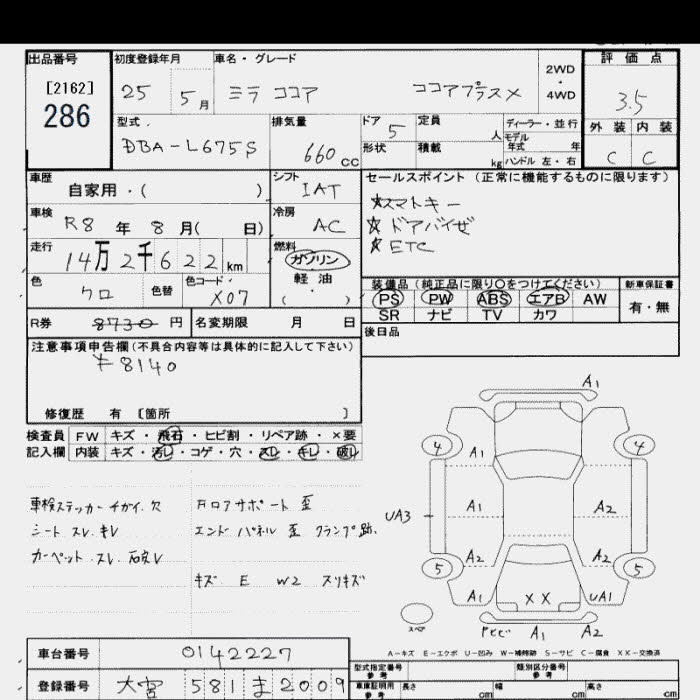 出品番号 初度登録年月 車名・グレード 評価点
[2162] 2WD
286 25 5月 ミラ ココア ココアプラスX ・ 3.5
4WD
型式. 排気量 ドア 5 定員 人 ディーラー・並行 外装 内装
モデル年式 年
DBA-L675S 660cc 形状 積載 kg ハンドル 左・右 C C
車歴 シフト セールスポイント (正常に機能するものに限ります)
自家用・( ) IAT ☆スマトキー
車検 R8年 8月( 日) 冷房 AC ☆ドアバイザ
走行 燃料 ☆ETC
14万2千622km ガソリン
色 色替 色コード 軽油 装備品 (純正品に限り○をつけてください) 新車保証書
クロ X07 (・) PS PW ABS エアB AW 有・無
R券 8730円 名変期限 月 日 SR ナビ TV カワ
後日品
注意事項申告欄(不具合内容等は具体的に記入して下さい)
¥8140
修復歴 有 〔箇所 〕
検査員 FW キズ・飛石・ヒビ割・リペア跡・×要
記入欄 内装 キズ・汚レ・コゲ・穴・スレ・キレ・破レ
車検ステッカー チガイ.欠
シート スレ キレ
カーペット スレ
コアサポート 歪
エンドパネル 歪 クランプ跡.
キズ E W2 スリキズ
A1
4 4
A1
UA3 A1 A2
A2 A2
5 5
A1 XX UA1
スペア A1 A2
A-キズ E-エクボ U-凹み W-補修跡 S-サビ C-腐食 XX-交換済
車台番号 0142227
登録番号 大宮 581 ま 2009
型式指定番号 参考 類別区分番号 参考
車庫証明用 参考 長さ cm 幅 cm 高さ cm